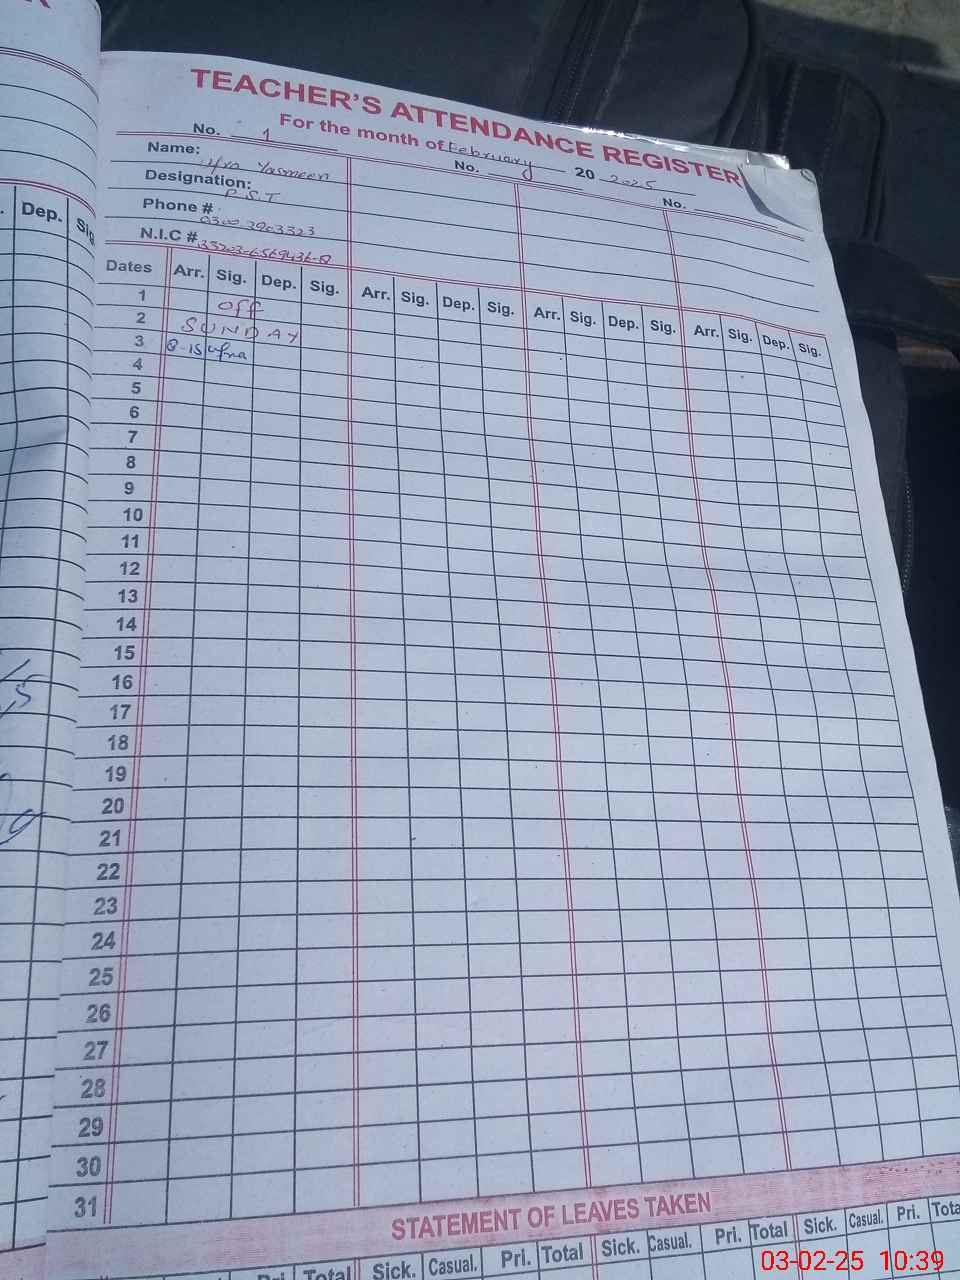 TEACHER'S ATTENDANCE REGISTER
For the month of February 20 2025
No. 1 No. No.
Name: Yasmeen
Designation: P.S.T
Phone # 0300 3903323
N.I.C #
Dates Arr. Sig. Dep. Sig. Arr. Sig. Dep. Sig. Arr. Sig. Dep. Sig. Arr. Sig. Dep. Sig.
1 off
2 SUNDAY
3 8-15
4
5
6
7
8
9
10
11
12
13
14
15
16
17
18
19
20
21
22
23
24
25
26
27
28
29
30
31
STATEMENT OF LEAVES TAKEN
Pri. Total Sick. Casual. Pri. Total Sick. Casual. Pri. Total Sick. Casual. Pri.
Dep.
03-02-25 10:39